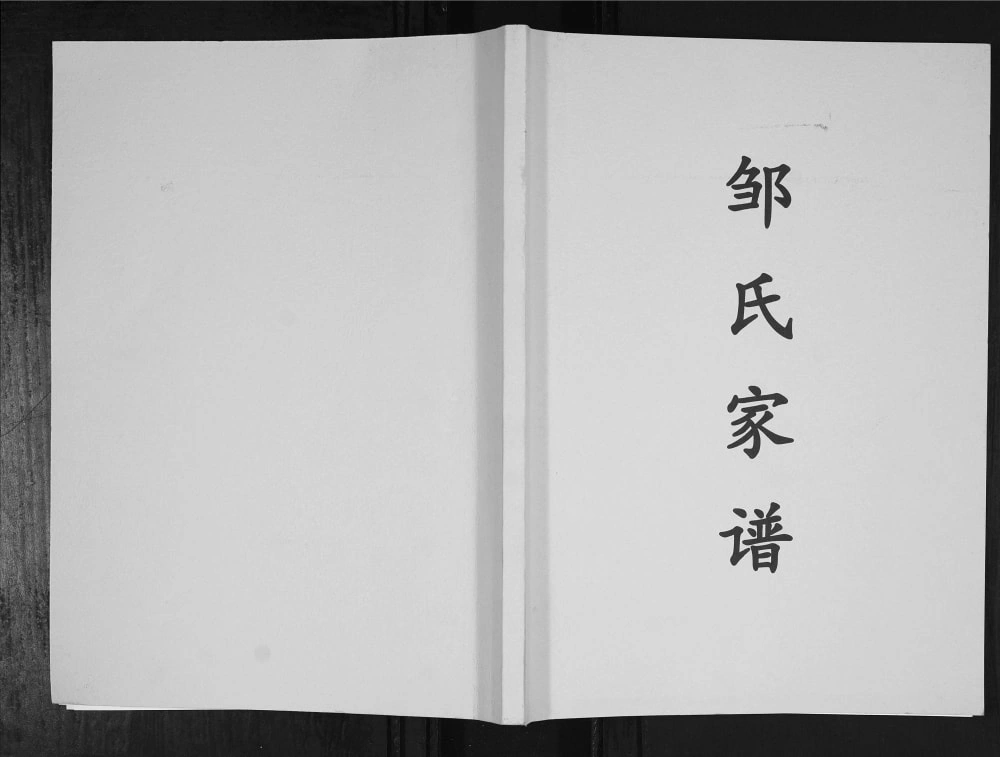 邹氏家谱